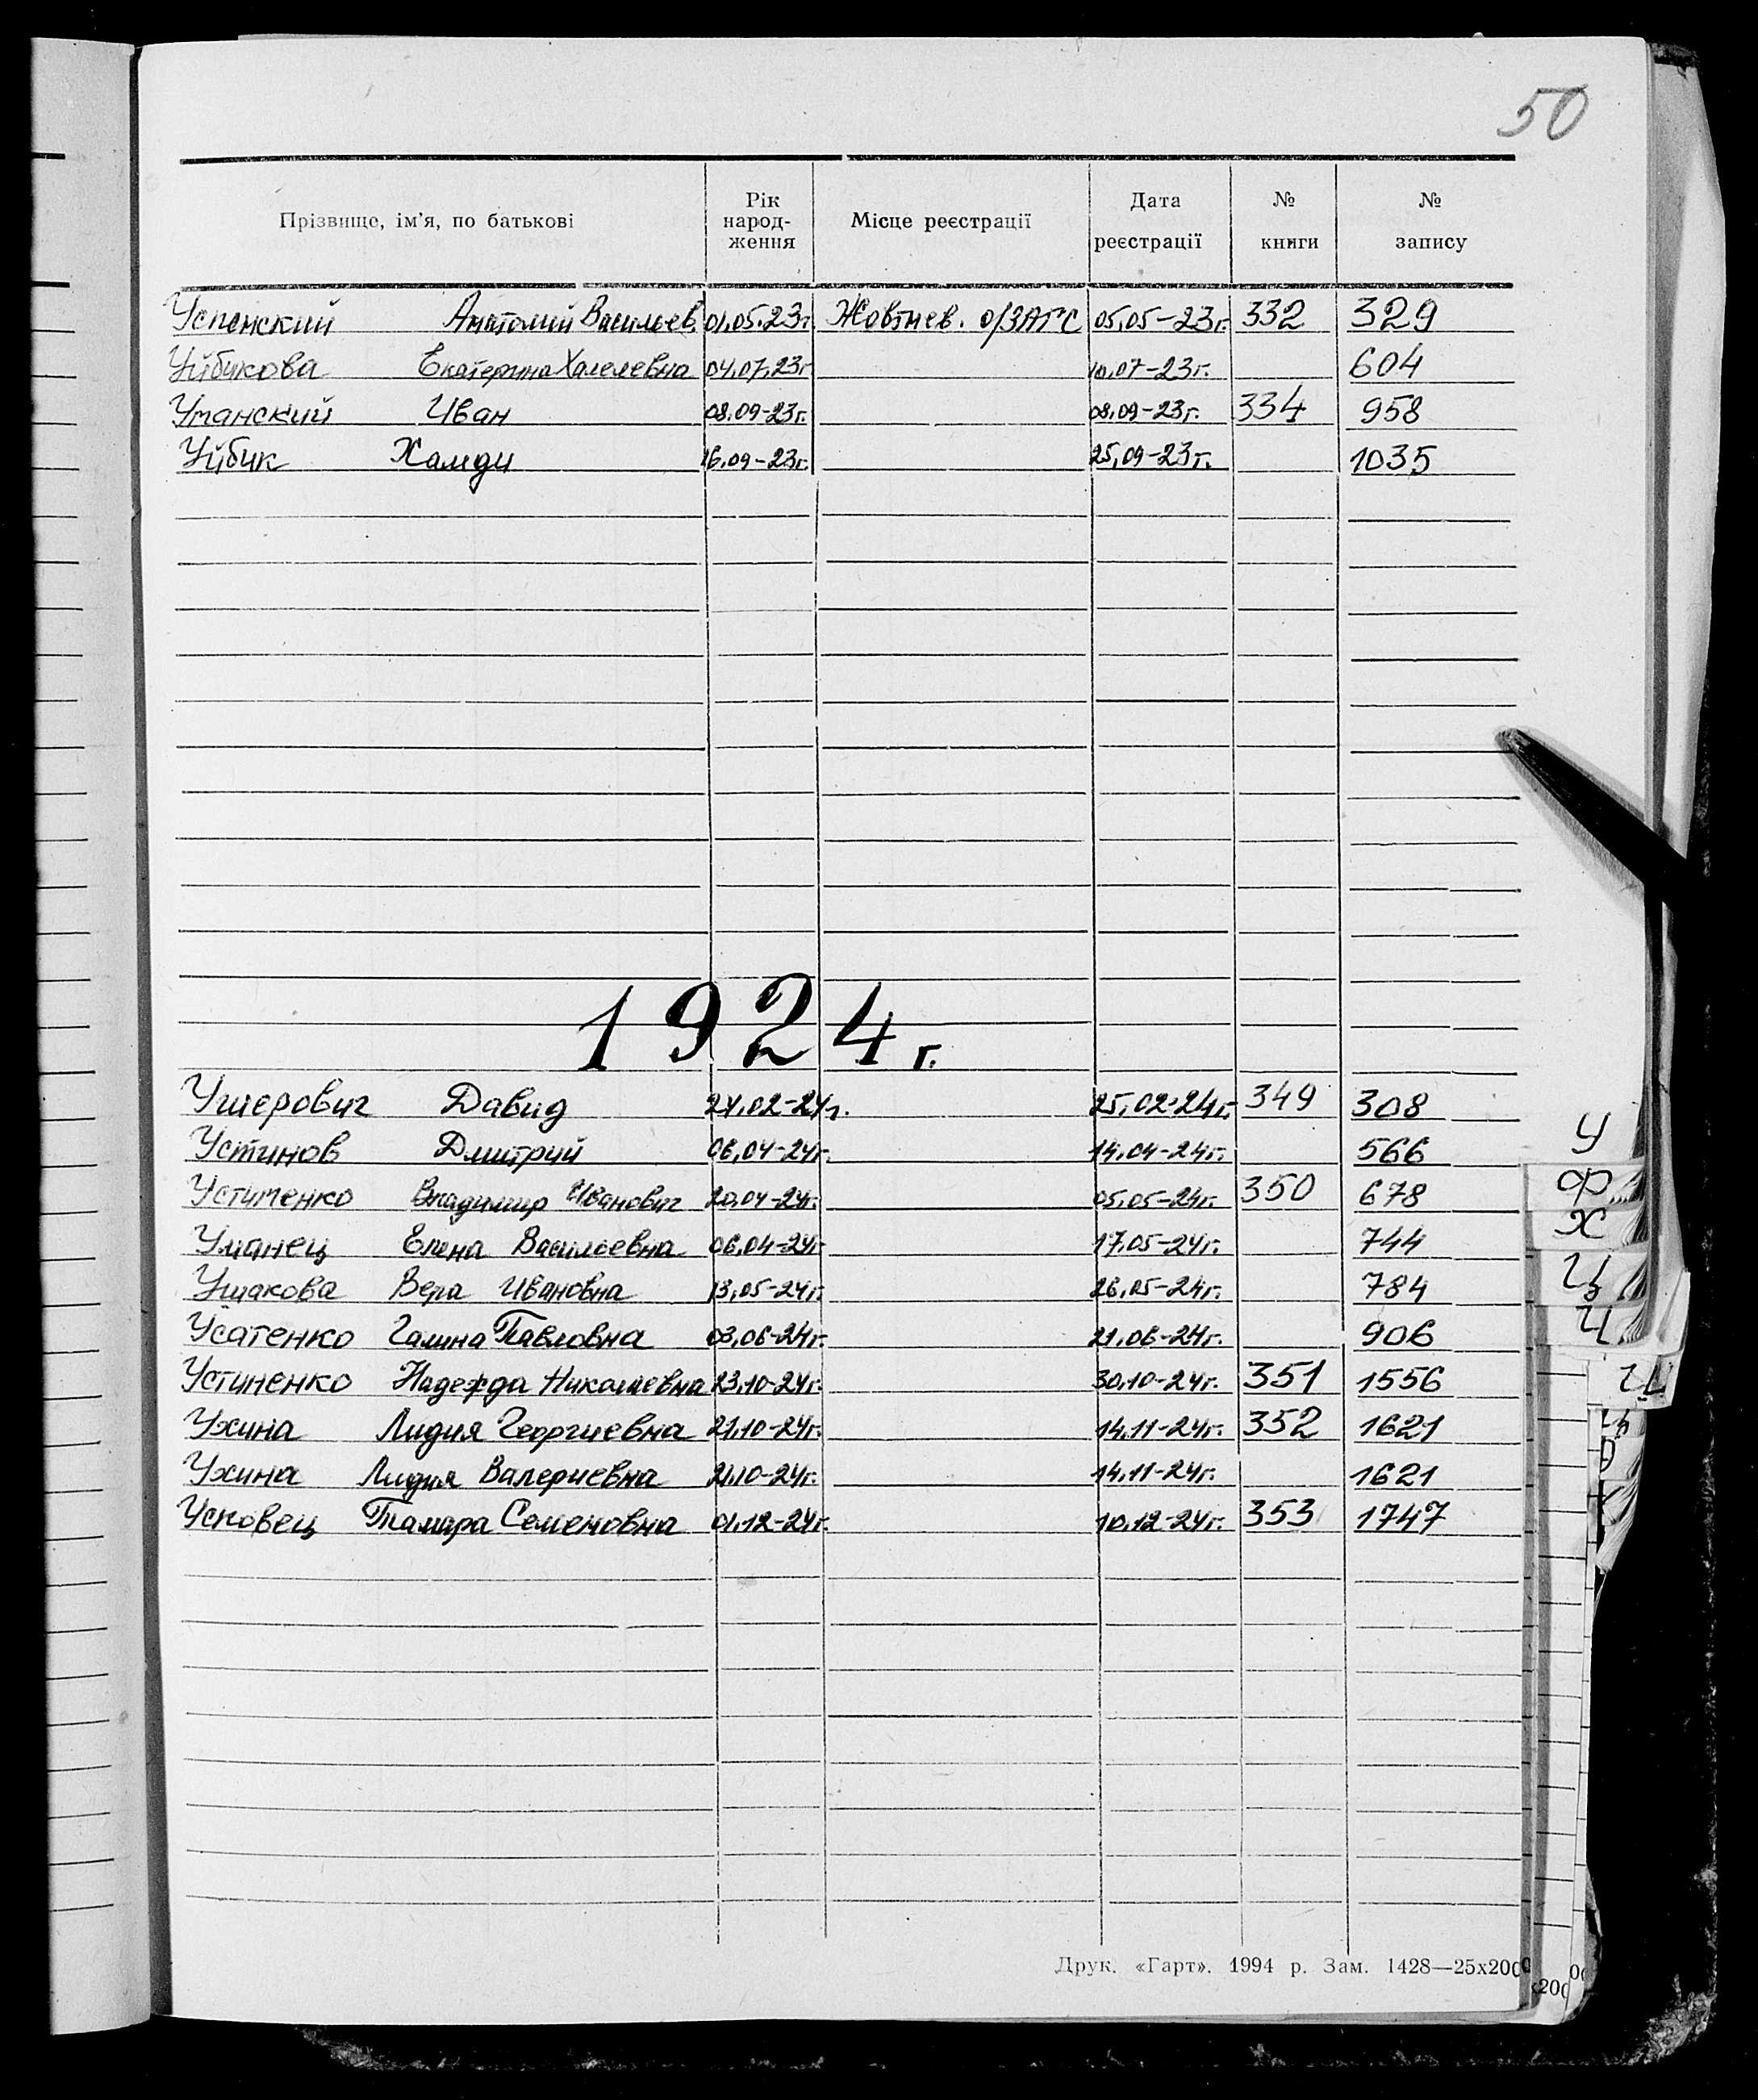 50
Прізвище, ім'я, по батькові Рік народ-ження Місце реєстрації Дата реєстрації № книги № запису
Успенский Анатолий Васильев. 01.05.23г. Жовтнев. о/ЗАГС 05.05-23г. 332 329
Уйбикова Екатерина Халелевна 04.07.23г 10.07-23г. 604
Уманский Иван 08.09-23г. 08.09-23г. 334 958
Уйбик Хамди 16.09-23г. 25.09-23г. 1035
1924 г.
Ушерович Давид 24.02-24г. 25.02-24г. 349 308
Устинов Дмитрий 06.04-24г. 14.04-24г. 566
Устименко Владимир Иванович 20.04-24г. 05.05-24г. 350 678
Уманец Елена Васильевна 06.04-24г 17.05-24г. 744
Ушакова Вера Ивановна 13.05-24г. 26.05-24г. 784
Усатенко Галина Павловна 03.06-24г. 21.06-24г. 906
Устиненко Надежда Николаевна 23.10-24г. 30.10-24г. 351 1556
Ухина Лидия Георгиевна 21.10-24г. 14.11-24г. 352 1621
Ухина Лидия Валериевна 21.10-24г. 14.11-24г. 1621
Усковец Тамара Семеновна 01.12-24г. 10.12-24г. 353 1747
У
Ф
Х
Ц
Ч
Друк. «Гарт». 1994 р. Зам. 1428—25х200